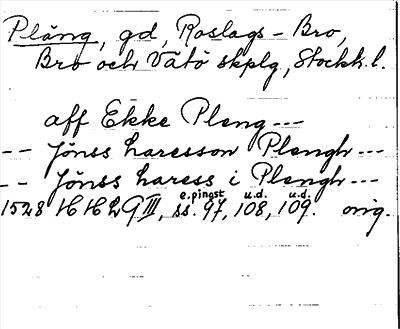 Pläng, gd, Roslags-Bro,
Bro och Vätö skplg, Stockh. l.
aff Ekke Pleng ---
-- Jönss haresson Plengh ---
-- Jönss haress i Plengh ---
e.pingst u.d. u.d.
1528 HH 29 III, ss. 97, 108, 109. orig.